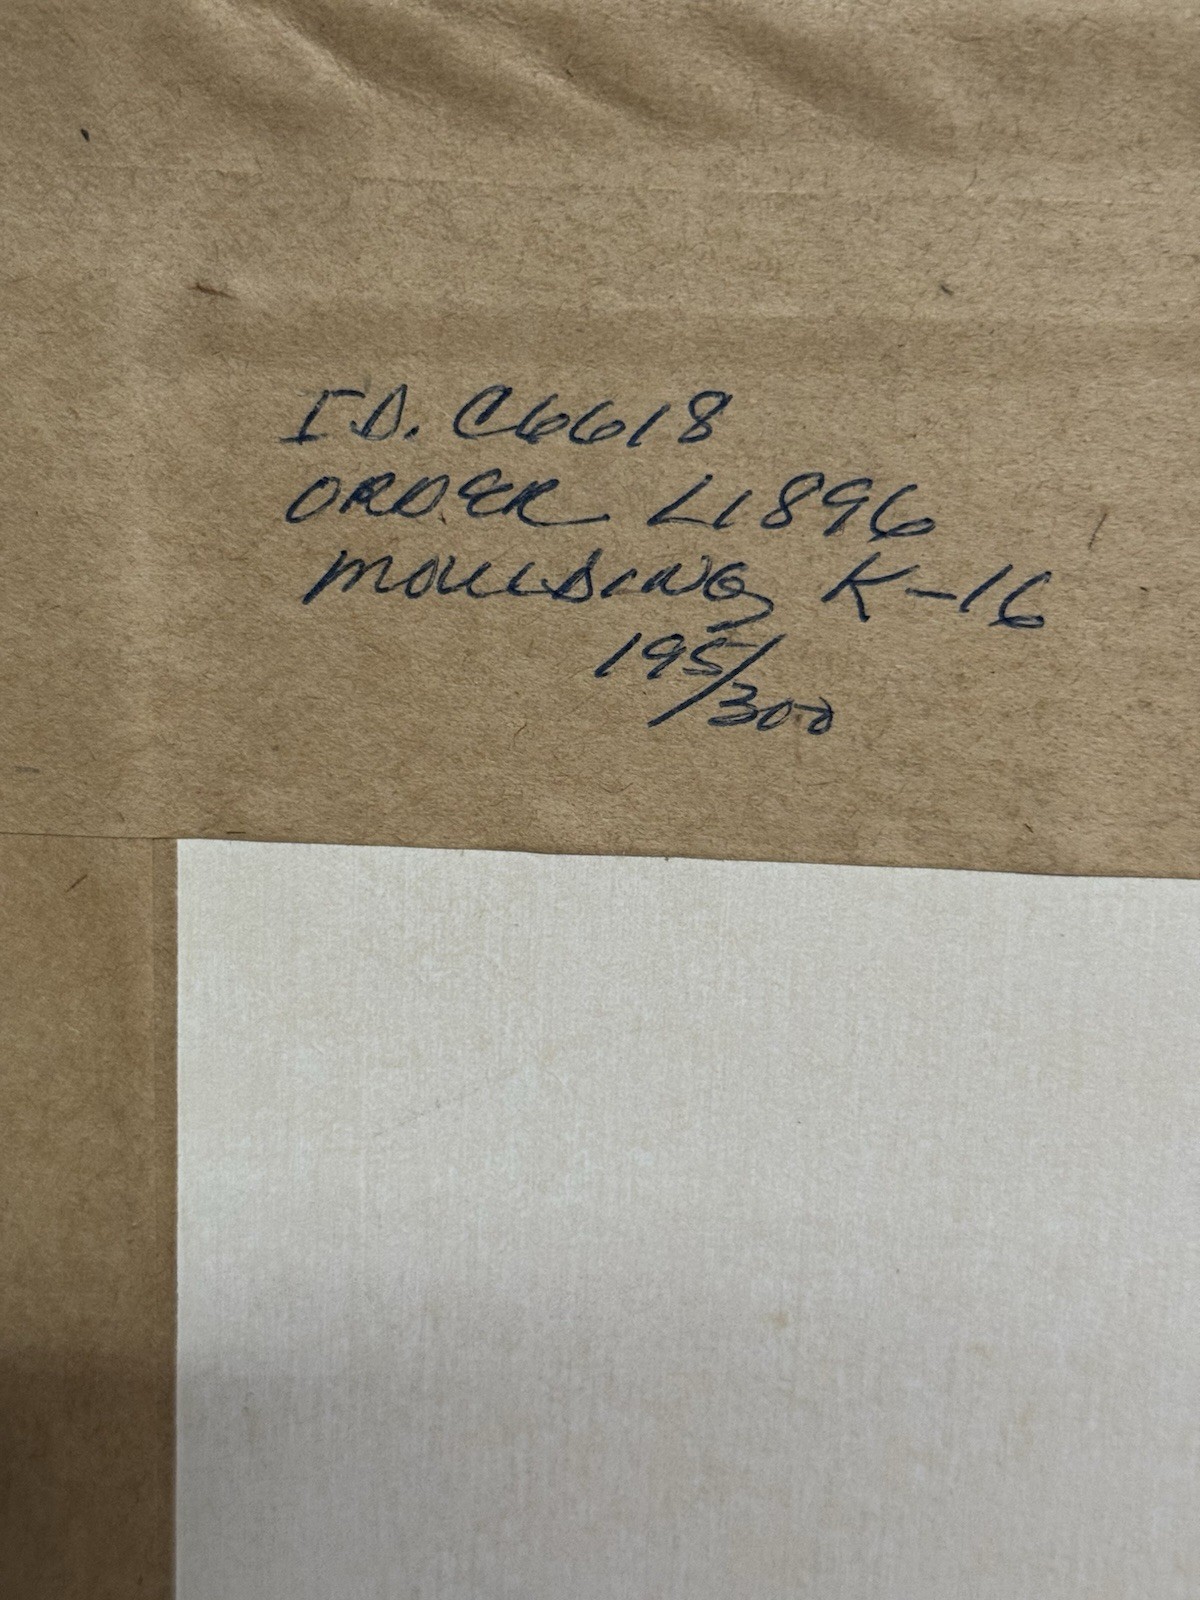 I.D. C6618
ORDER L1896
MOULDING K-16
195/300